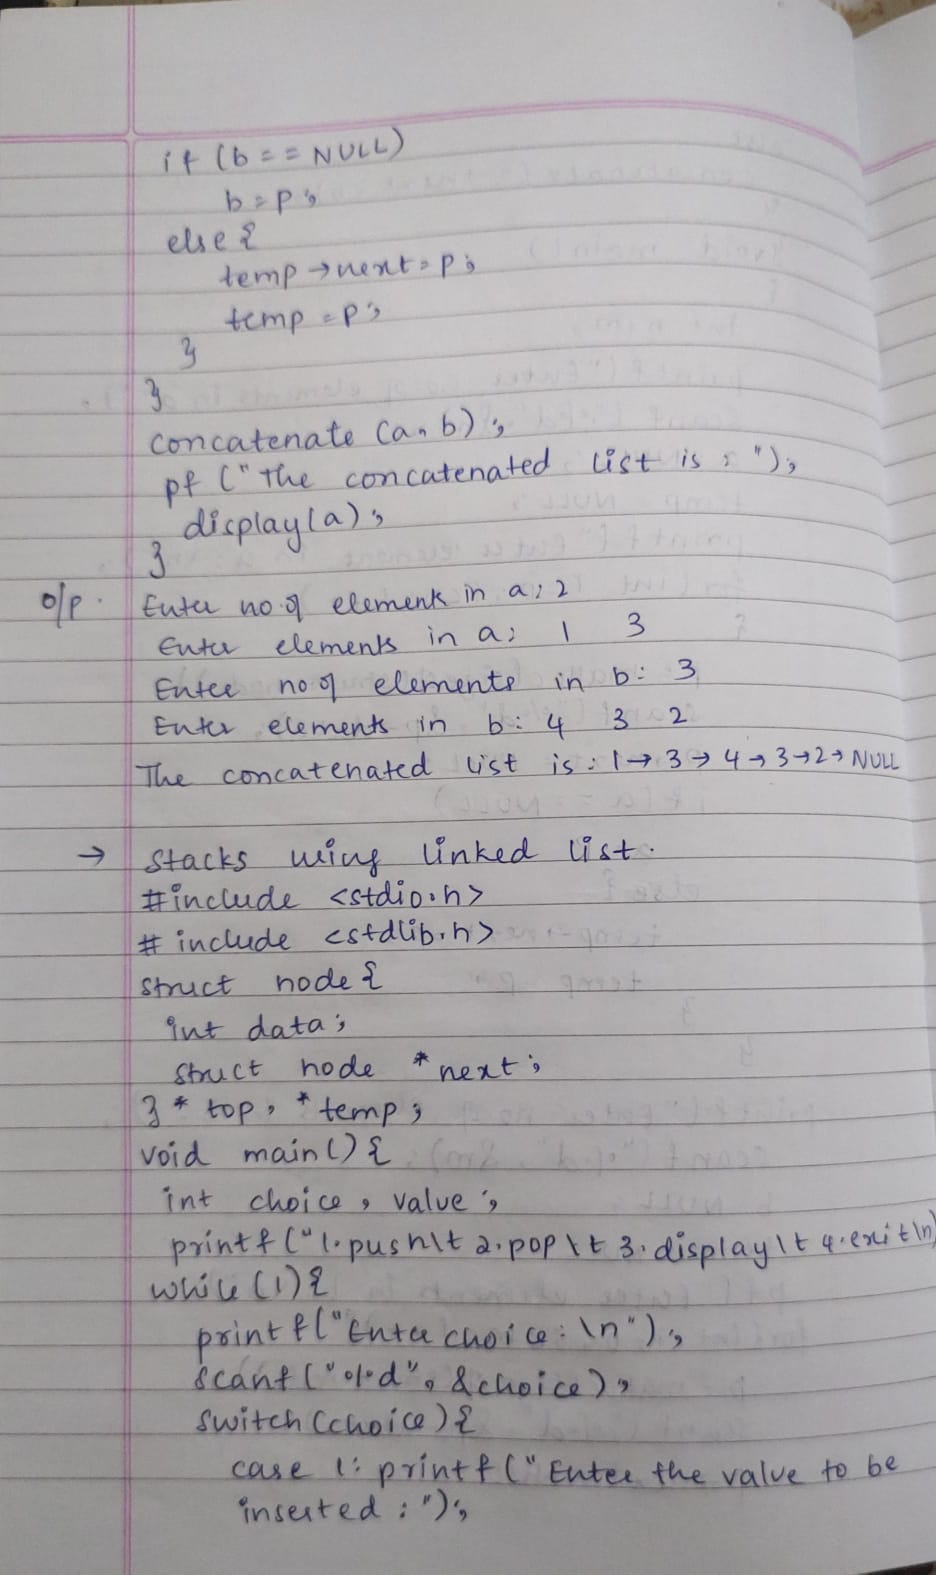 if (b == NULL)
b = p;
else {
temp → next = p;
temp = p;
}
}
concatenate (a, b);
pf ("The concatenated list is : ");
display(a);
}
o/p. Enter no. of elements in a: 2
Enter elements in a: 1 3
Enter no of elements in b: 3
Enter elements in b: 4 3 2
The concatenated list is: 1 → 3 → 4 → 3 → 2 → NULL
→ Stacks using linked list.
#include <stdio.h>
# include <stdlib.h>
struct node {
int data;
struct node *next;
} * top, *temp;
void main() {
int choice, value;
printf("1.push\t 2.pop\t 3.display\t 4.exit\n)
while (1) {
printf("Enter choice: \n");
scanf("%d", &choice);
switch (choice) {
case 1: printf("Enter the value to be
inserted : ");